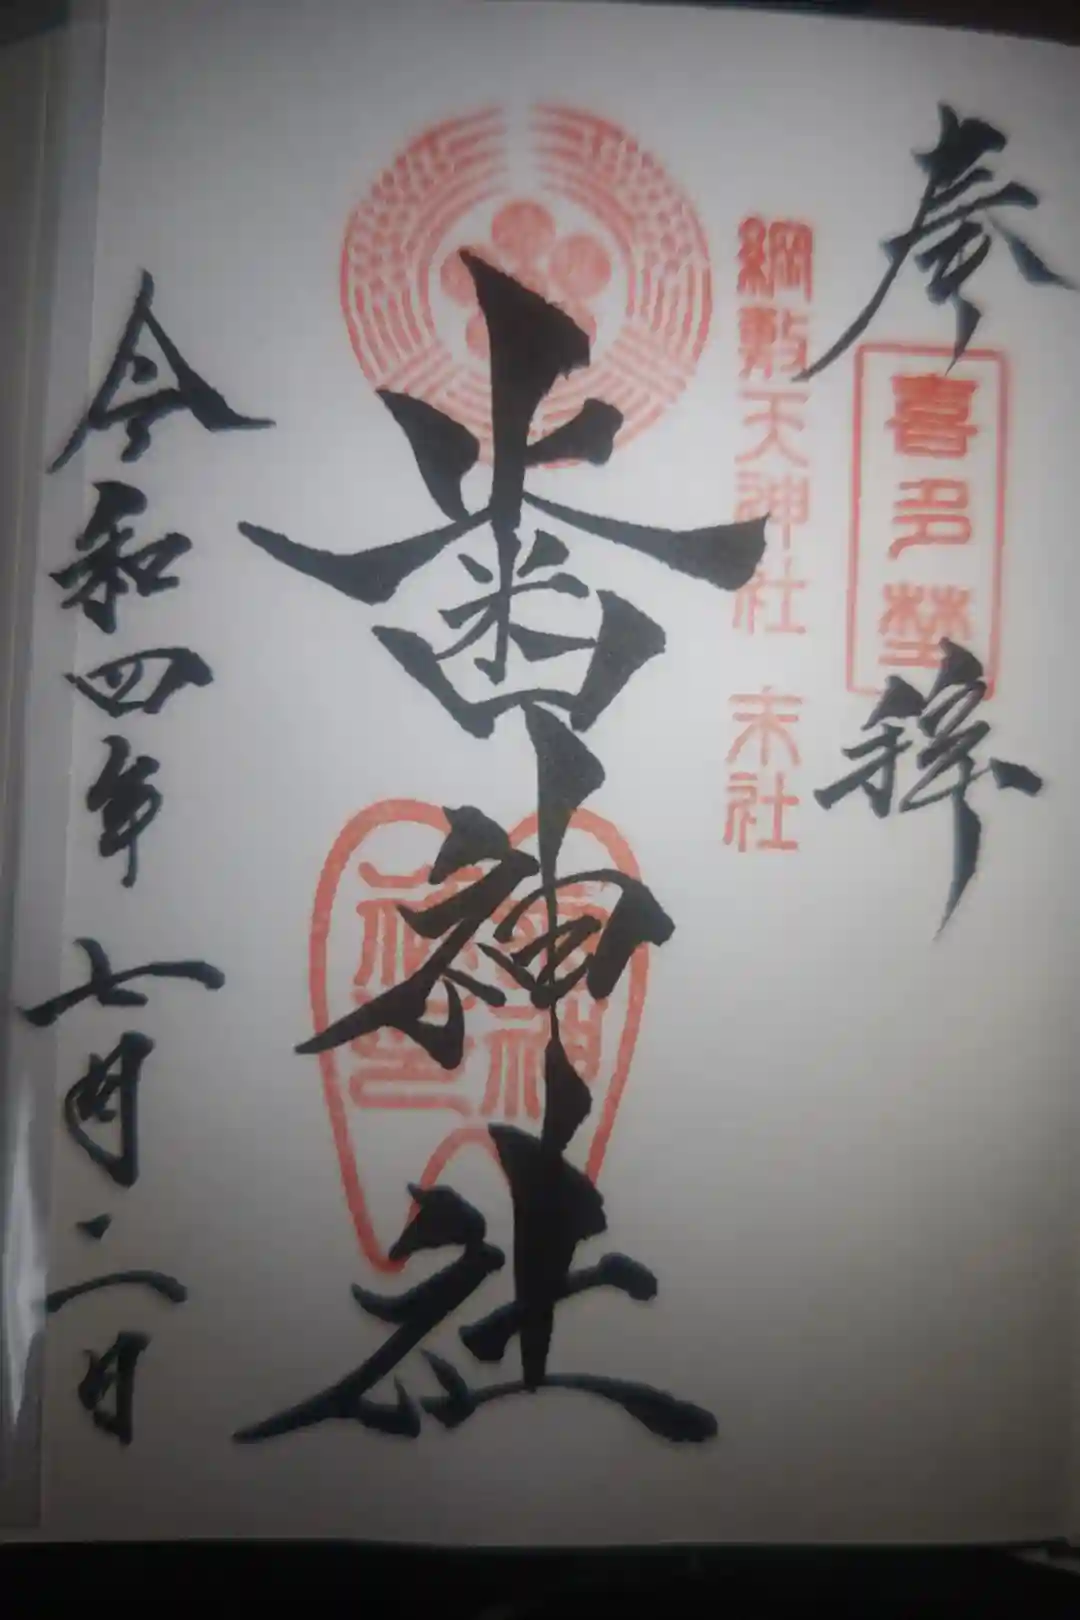 奉拝
喜多埜
綱敷天神社 末社
歯神社
令和四年七月二日